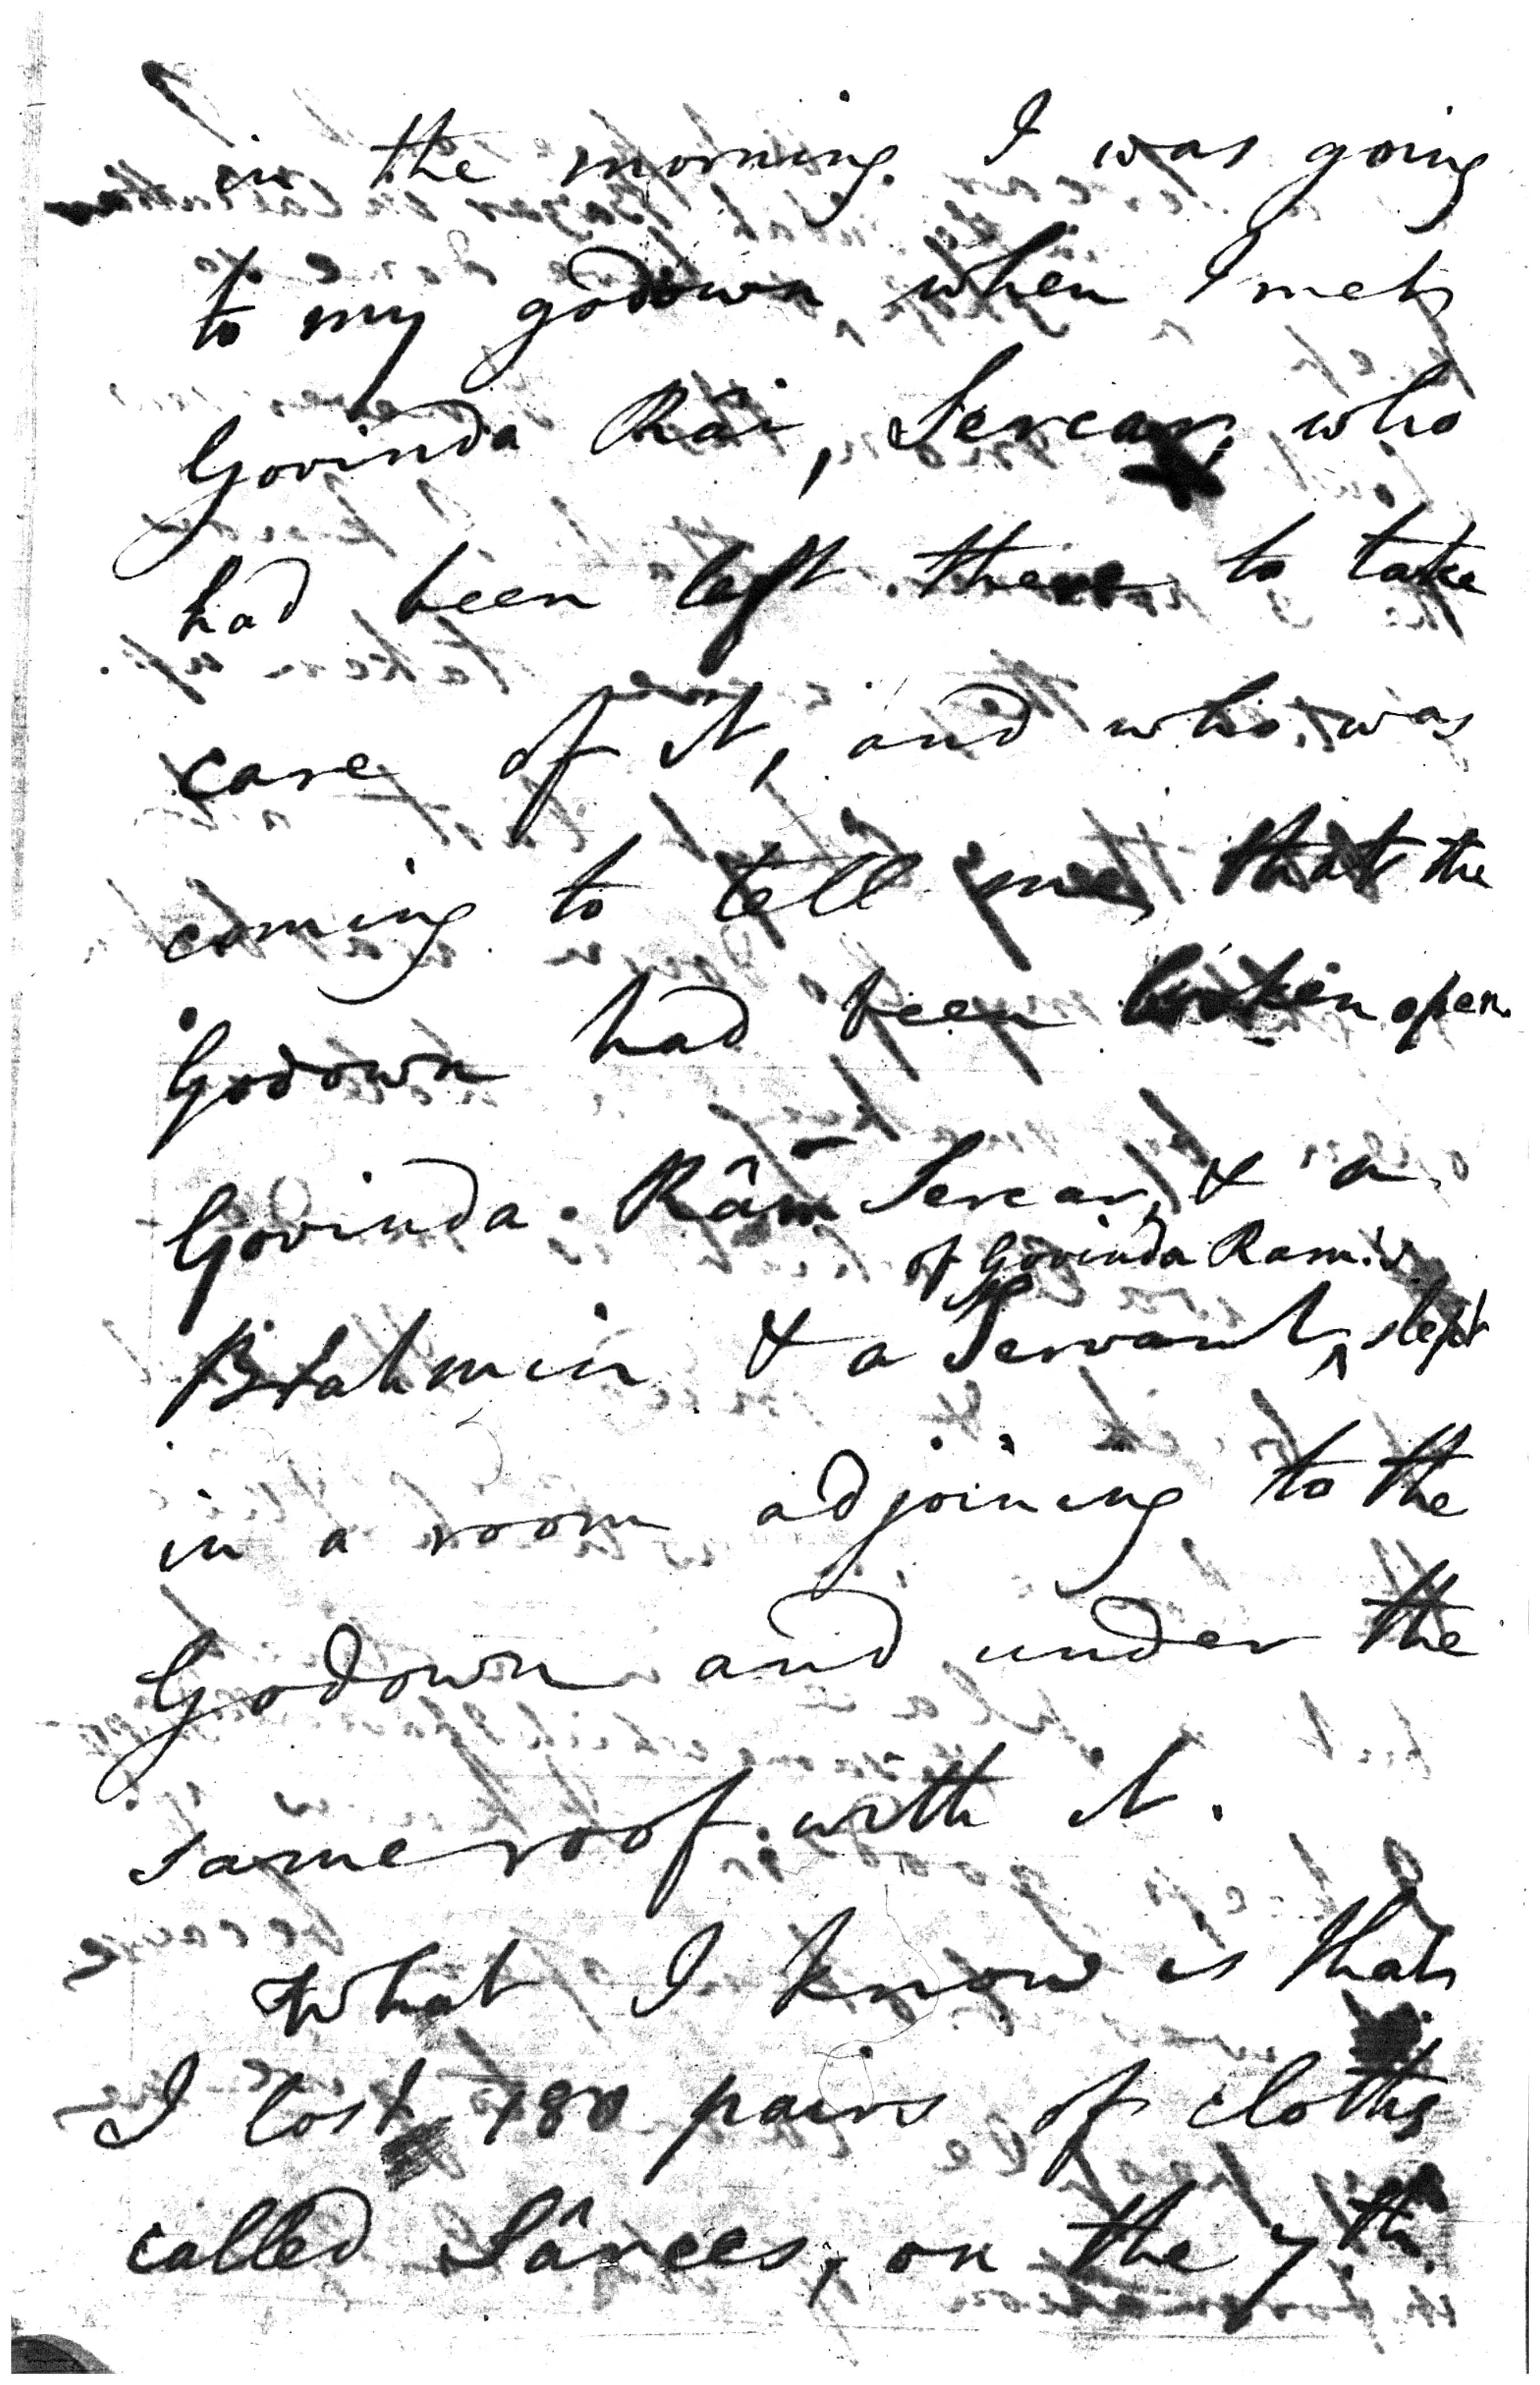 in the morning. I was going
to my godown when I met
Govinda Râi, Sercar, who
had been left there to take
care of it, and who was
coming to tell me, that the
Godown had been broken open.
Govinda Râm Sercar, & a
of Govinda Ram's
Brahmin & a Servant ^ slept
in a room adjoining to the
Godown and under the
same roof with it.
What I know is that
I lost 480 pairs of cloths
called Sârees, on the 7th